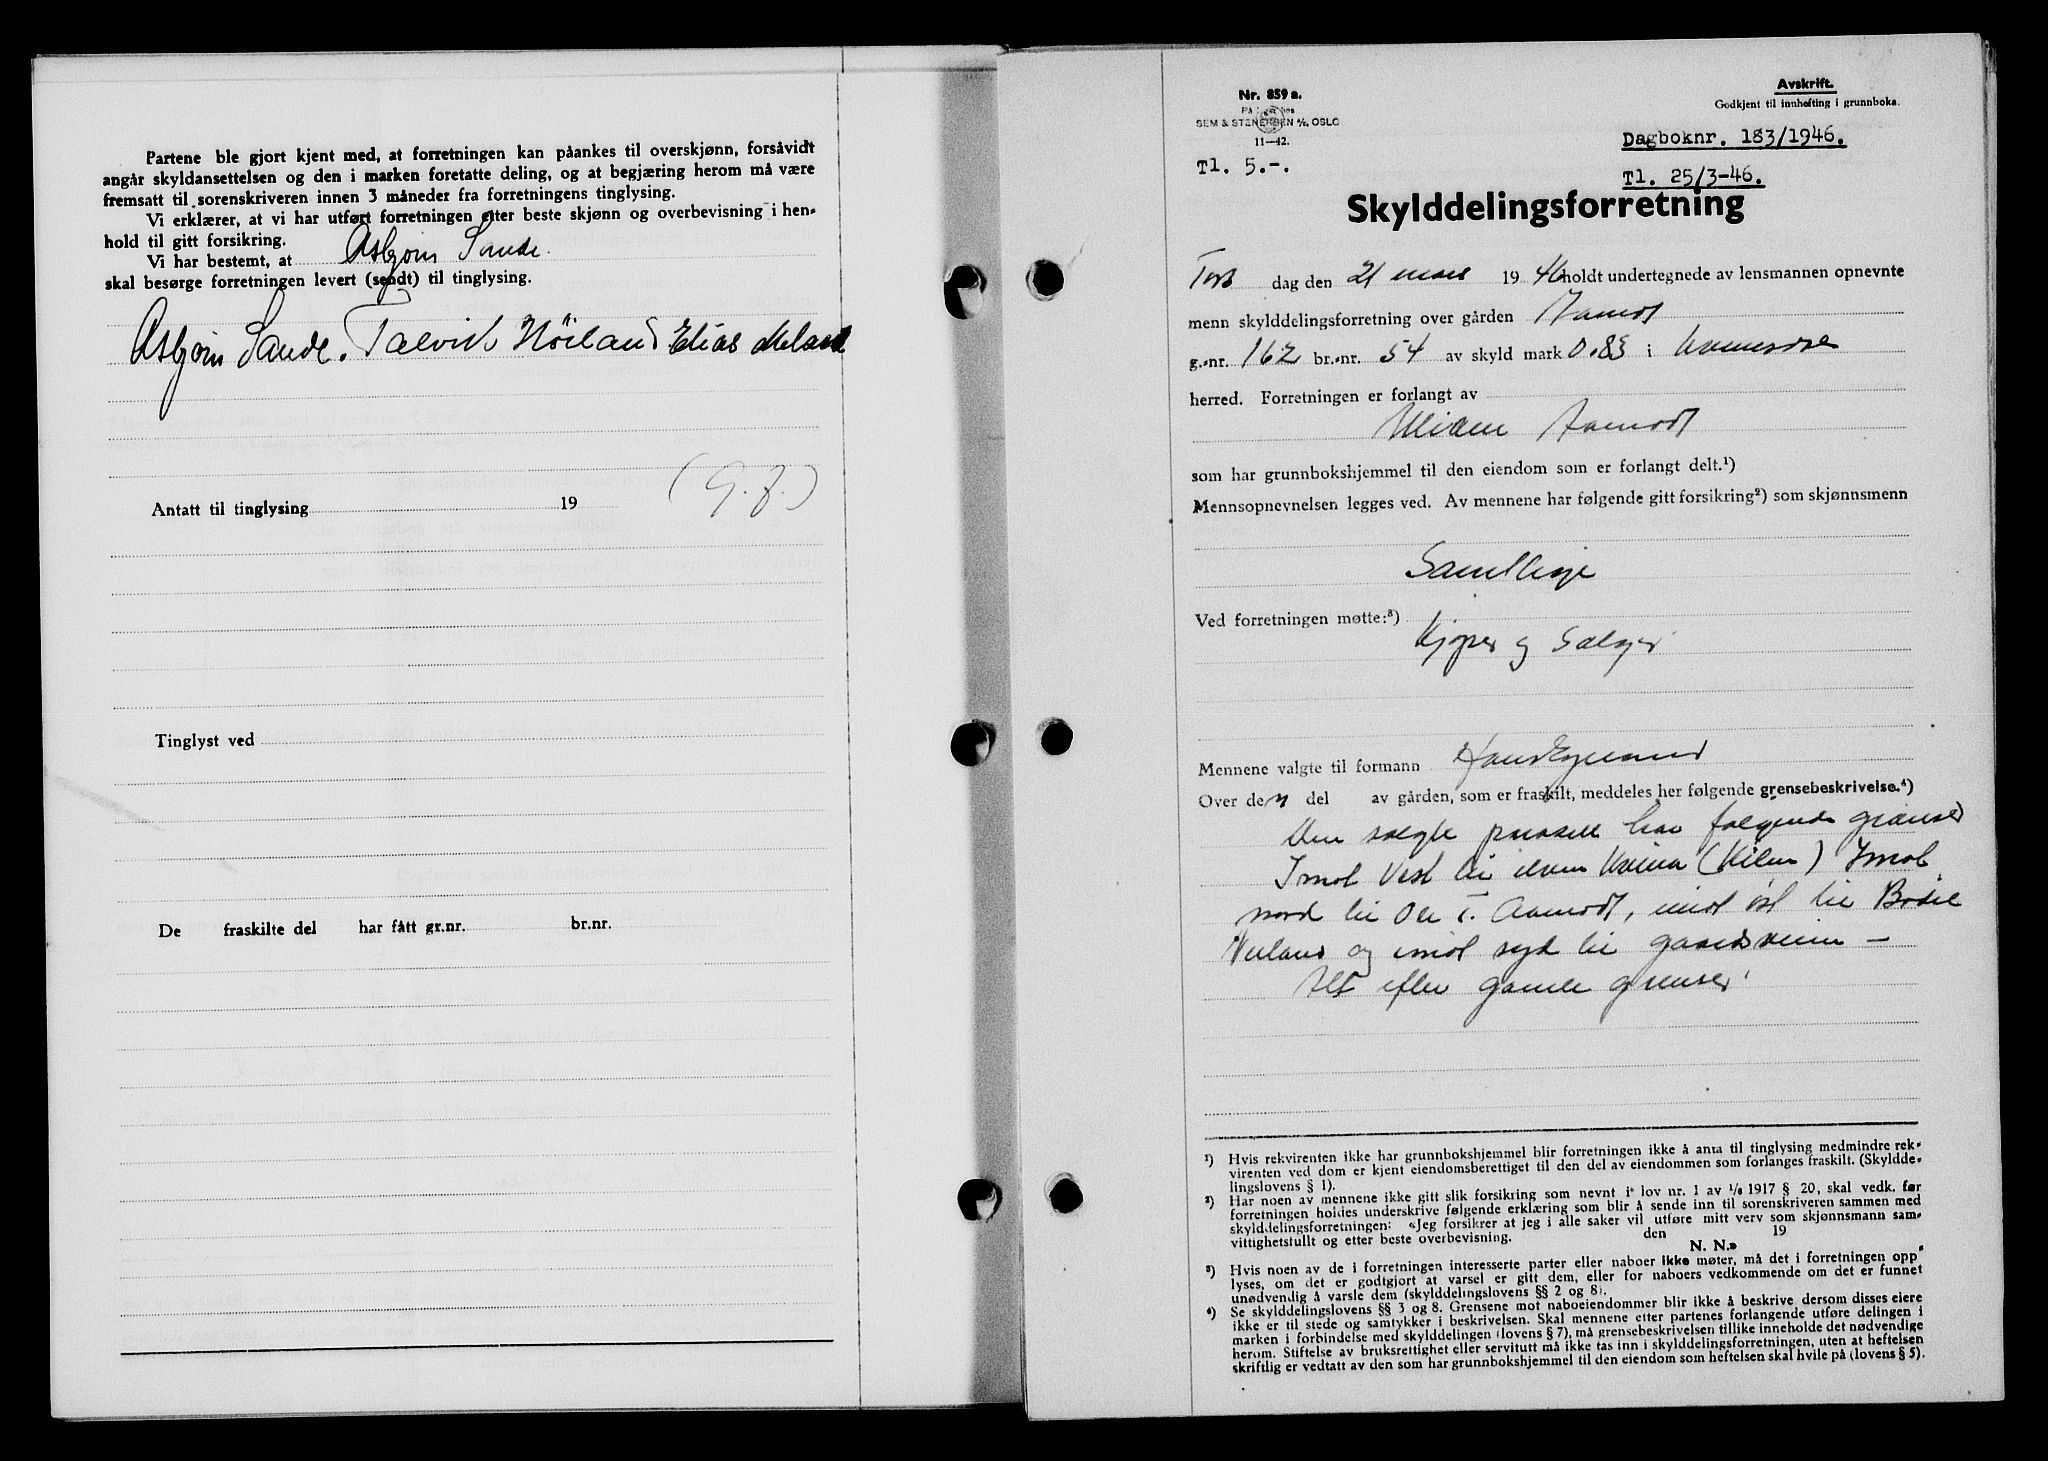 Partene ble gjort kjent med, at forretningen kan påankes til overskjønn, forsåvidt
angår skyldansettelsen og den i marken foretatte deling, og at begjæring herom må være
fremsatt til sorenskriveren innen 3 måneder fra forretningens tinglysing.
Vi erklærer, at vi har utført forretningen etter beste skjønn og overbevisning i hen-
hold til gitt forsikring.
Vi har bestemt, at Asbjørn Sande.
skal besørge forretningen levert (sendt) til tinglysing.
Asbjørn Sande. Talvik Höiland Elias
Antatt til tinglysing 19
Tinglyst ved
De fraskilte del har fått gr.nr. br.nr.
Nr. 859 a.
SEM & STENERSEN A/S, OSLO
11—42.
Tl. 5.-.
Avskrift.
Godkjent til innhefting i grunnboka.
Dagboknr. 183/1946.
Tl. 25/3-46.
Skylddelingsforretning
Tors dag den 21 mars 1946 holdt undertegnede av lensmannen opnevnte
menn skylddelingsforretning over gården Aamot
g.-nr. 162 br.-nr. 54 av skyld mark 0.83 i
herred. Forretningen er forlangt av
Aamodt
som har grunnbokshjemmel til den eiendom som er forlangt delt.¹)
Mennsopnevnelsen legges ved. Av mennene har følgende gitt forsikring²) som skjønnsmenn
Samtlige
Ved forretningen møtte:³)
Kjøper og Sælger
Mennene valgte til formann
Over den del av gården, som er fraskilt, meddeles her følgende grensebeskrivelse.⁴)
Den solgte parsell har følgende grænser
Imot Vest til elven Kvina (Kilen) Imot
nord til Ole T. Aamodt, imot øst til Bodil
og imot syd til gaardsveien —
Alt efter gamle grenser
¹) Hvis rekvirenten ikke har grunnbokshjemmel blir forretningen ikke å anta til tinglysing medmindre rek-
virenten ved dom er kjent eiendomsberettiget til den del av eiendommen som forlanges fraskilt. (Skyldde-
lingslovens § 1).
²) Har noen av mennene ikke gitt slik forsikring som nevnt i lov nr. 1 av 1/6 1917 § 20, skal vedk. før
forretningen holdes underskrive følgende erklæring som blir å sende inn til sorenskriveren sammen med
skylddelingsforretningen: «Jeg forsikrer at jeg i alle saker vil utføre mitt verv som skjønnsmann sam-
vittighetsfullt og etter beste overbevisning. den 19
N. N.»
³) Hvis noen av de i forretningen interesserte parter eller naboer ikke møter, må det i forretningen opp-
lyses, om det er godtgjort at varsel er gitt dem, eller for naboers vedkommende om det er funnet
unødvendig å varsle dem (skylddelingslovens §§ 2 og 8).
⁴) Se skylddelingslovens §§ 3 og 8. Grensene mot naboeiendommer blir ikke å beskrive dersom disses eiere
ikke er til stede og samtykker i beskrivelsen. Skal mennene etter partenes forlangende utføre delingen i
marken i forbindelse med skylddelingen (lovens § 7), må grensebeskrivelsen tillike inneholde det nødvendige
herom. Stiftelse av bruksrettighet eller servitutt må ikke tas inn i skylddelingsforretningen, uten at heftelsen
skriftlig er vedtatt av den som har grunnbokshjemmel til den eiendom som heftelsen skal hvile på (lovens § 5).